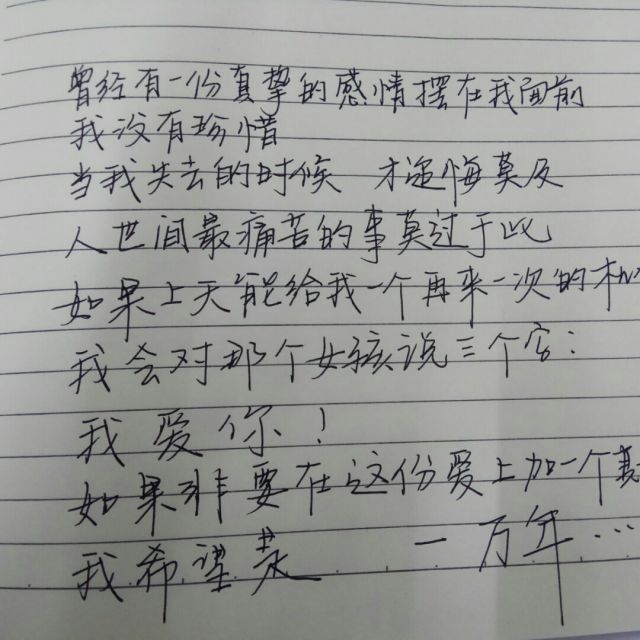 曾经有一份真挚的感情摆在我面前
我没有珍惜
当我失去的时候 才追悔莫及
人世间最痛苦的事莫过于此
如果上天能给我一个再来一次的机
我会对那个女孩说三个字：
我爱你！
如果非要在这份爱上加一个
我希望是 一万年…